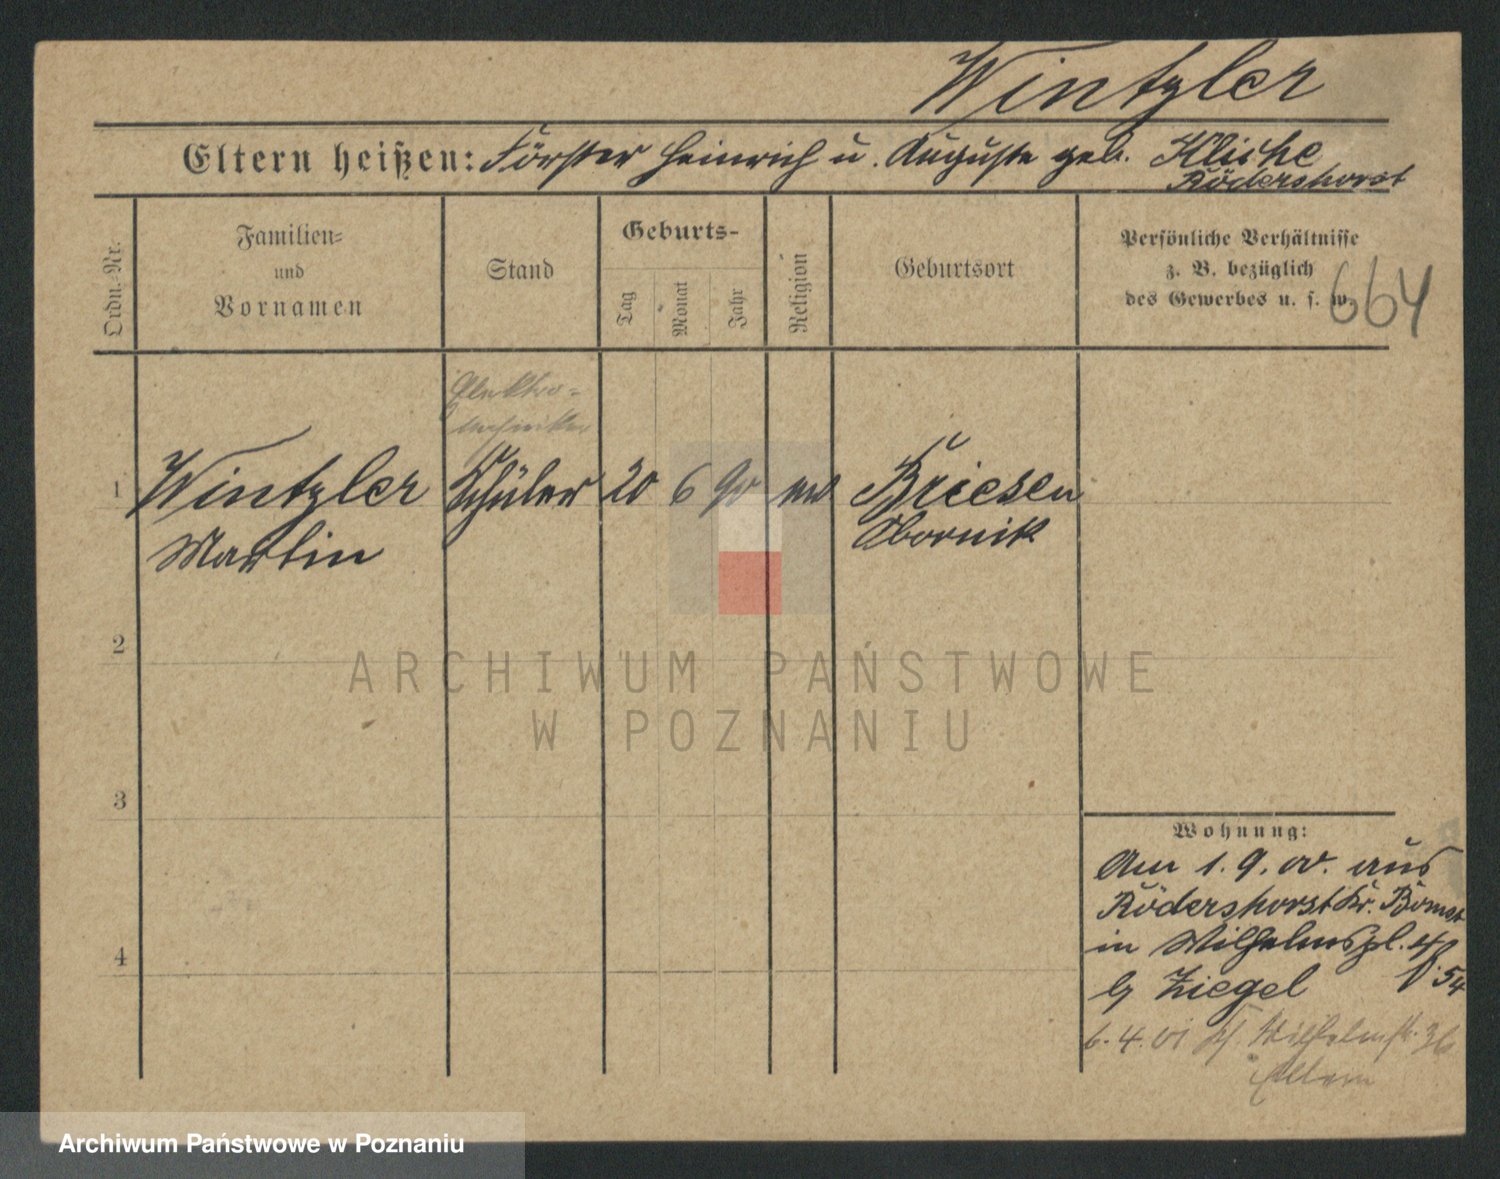 Wintzler
Eltern heißen: Förster Heinrich u. Auguste geb. Kliche
Rödershorst
Ordn.-Nr.
Familien-
und
Vornamen
Stand
Geburts-
Tag
Monat
Jahr
Religion
Geburtsort
Persönliche Verhältnisse
z. B. bezüglich
des Gewerbes u. s. w.
664
Elektro-
techniker
1 Wintzler Schüler 20 6 90 ev Briesen
Martin Obornik
2
ARCHIWUM PAŃSTWOWE
W POZNANIU
3
Wohnung:
Am 1. 9. 00. aus
Rödershorst Kr. Bomst
in Wilhelmspl. 4
4
b/ Ziegel f. 54
6. 4. 01 Wilhelmstr. 36
Eltern
Archiwum Państwowe w Poznaniu